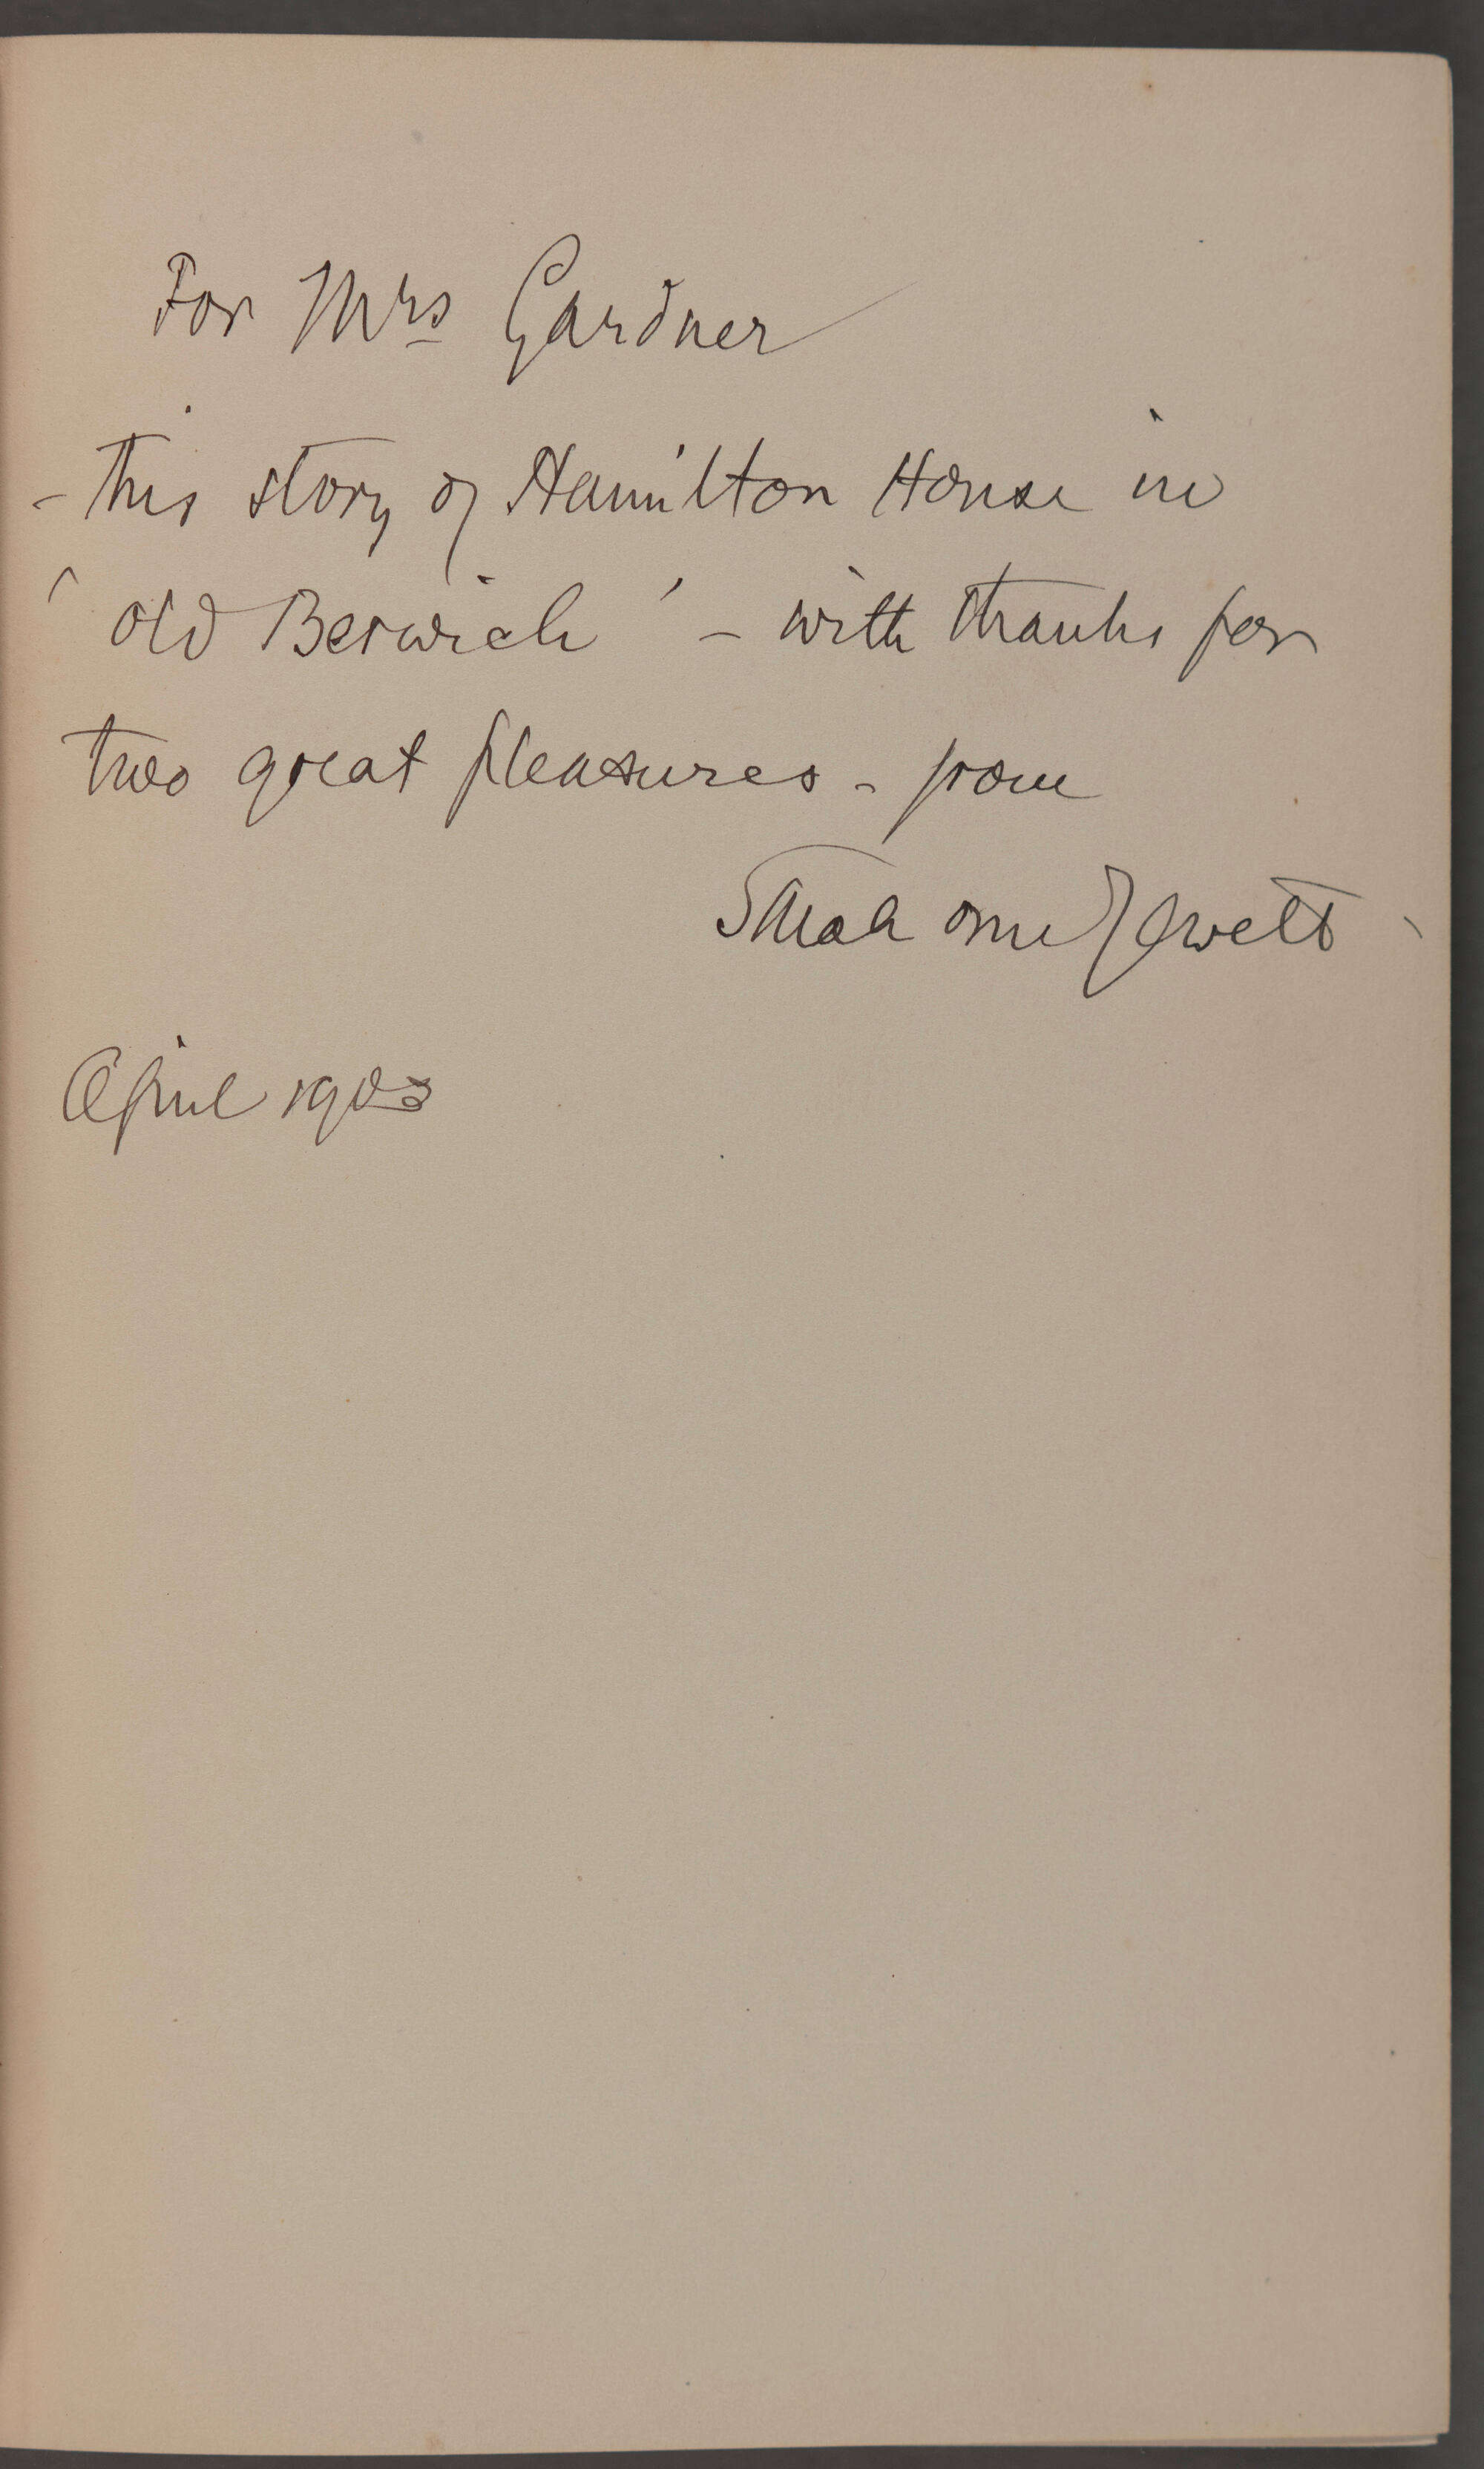 For Mrs Gardner
- this story of Hamilton House in
'old Berwick' - with thanks for
two great pleasures - from
Sarah Orne Jewett
April 1903